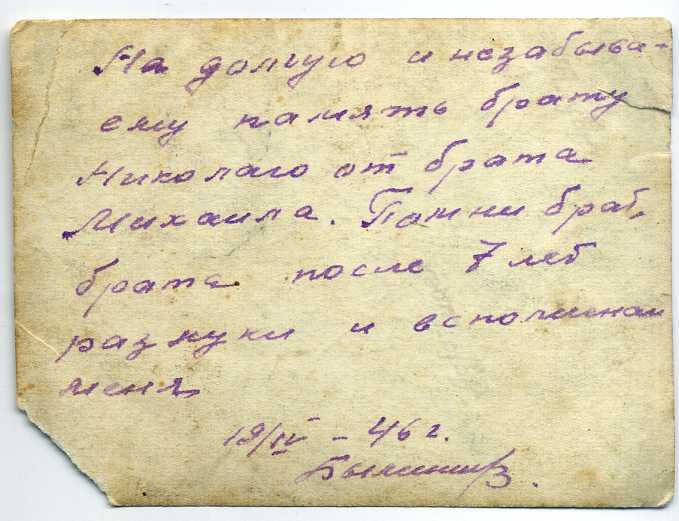 На долгую и незабыва-
ему память брату
Николаю от брата
Михаила. Помни брат,
брата после 7 лет
разлуки и вспоминай
меня
19/IV – 46 г.